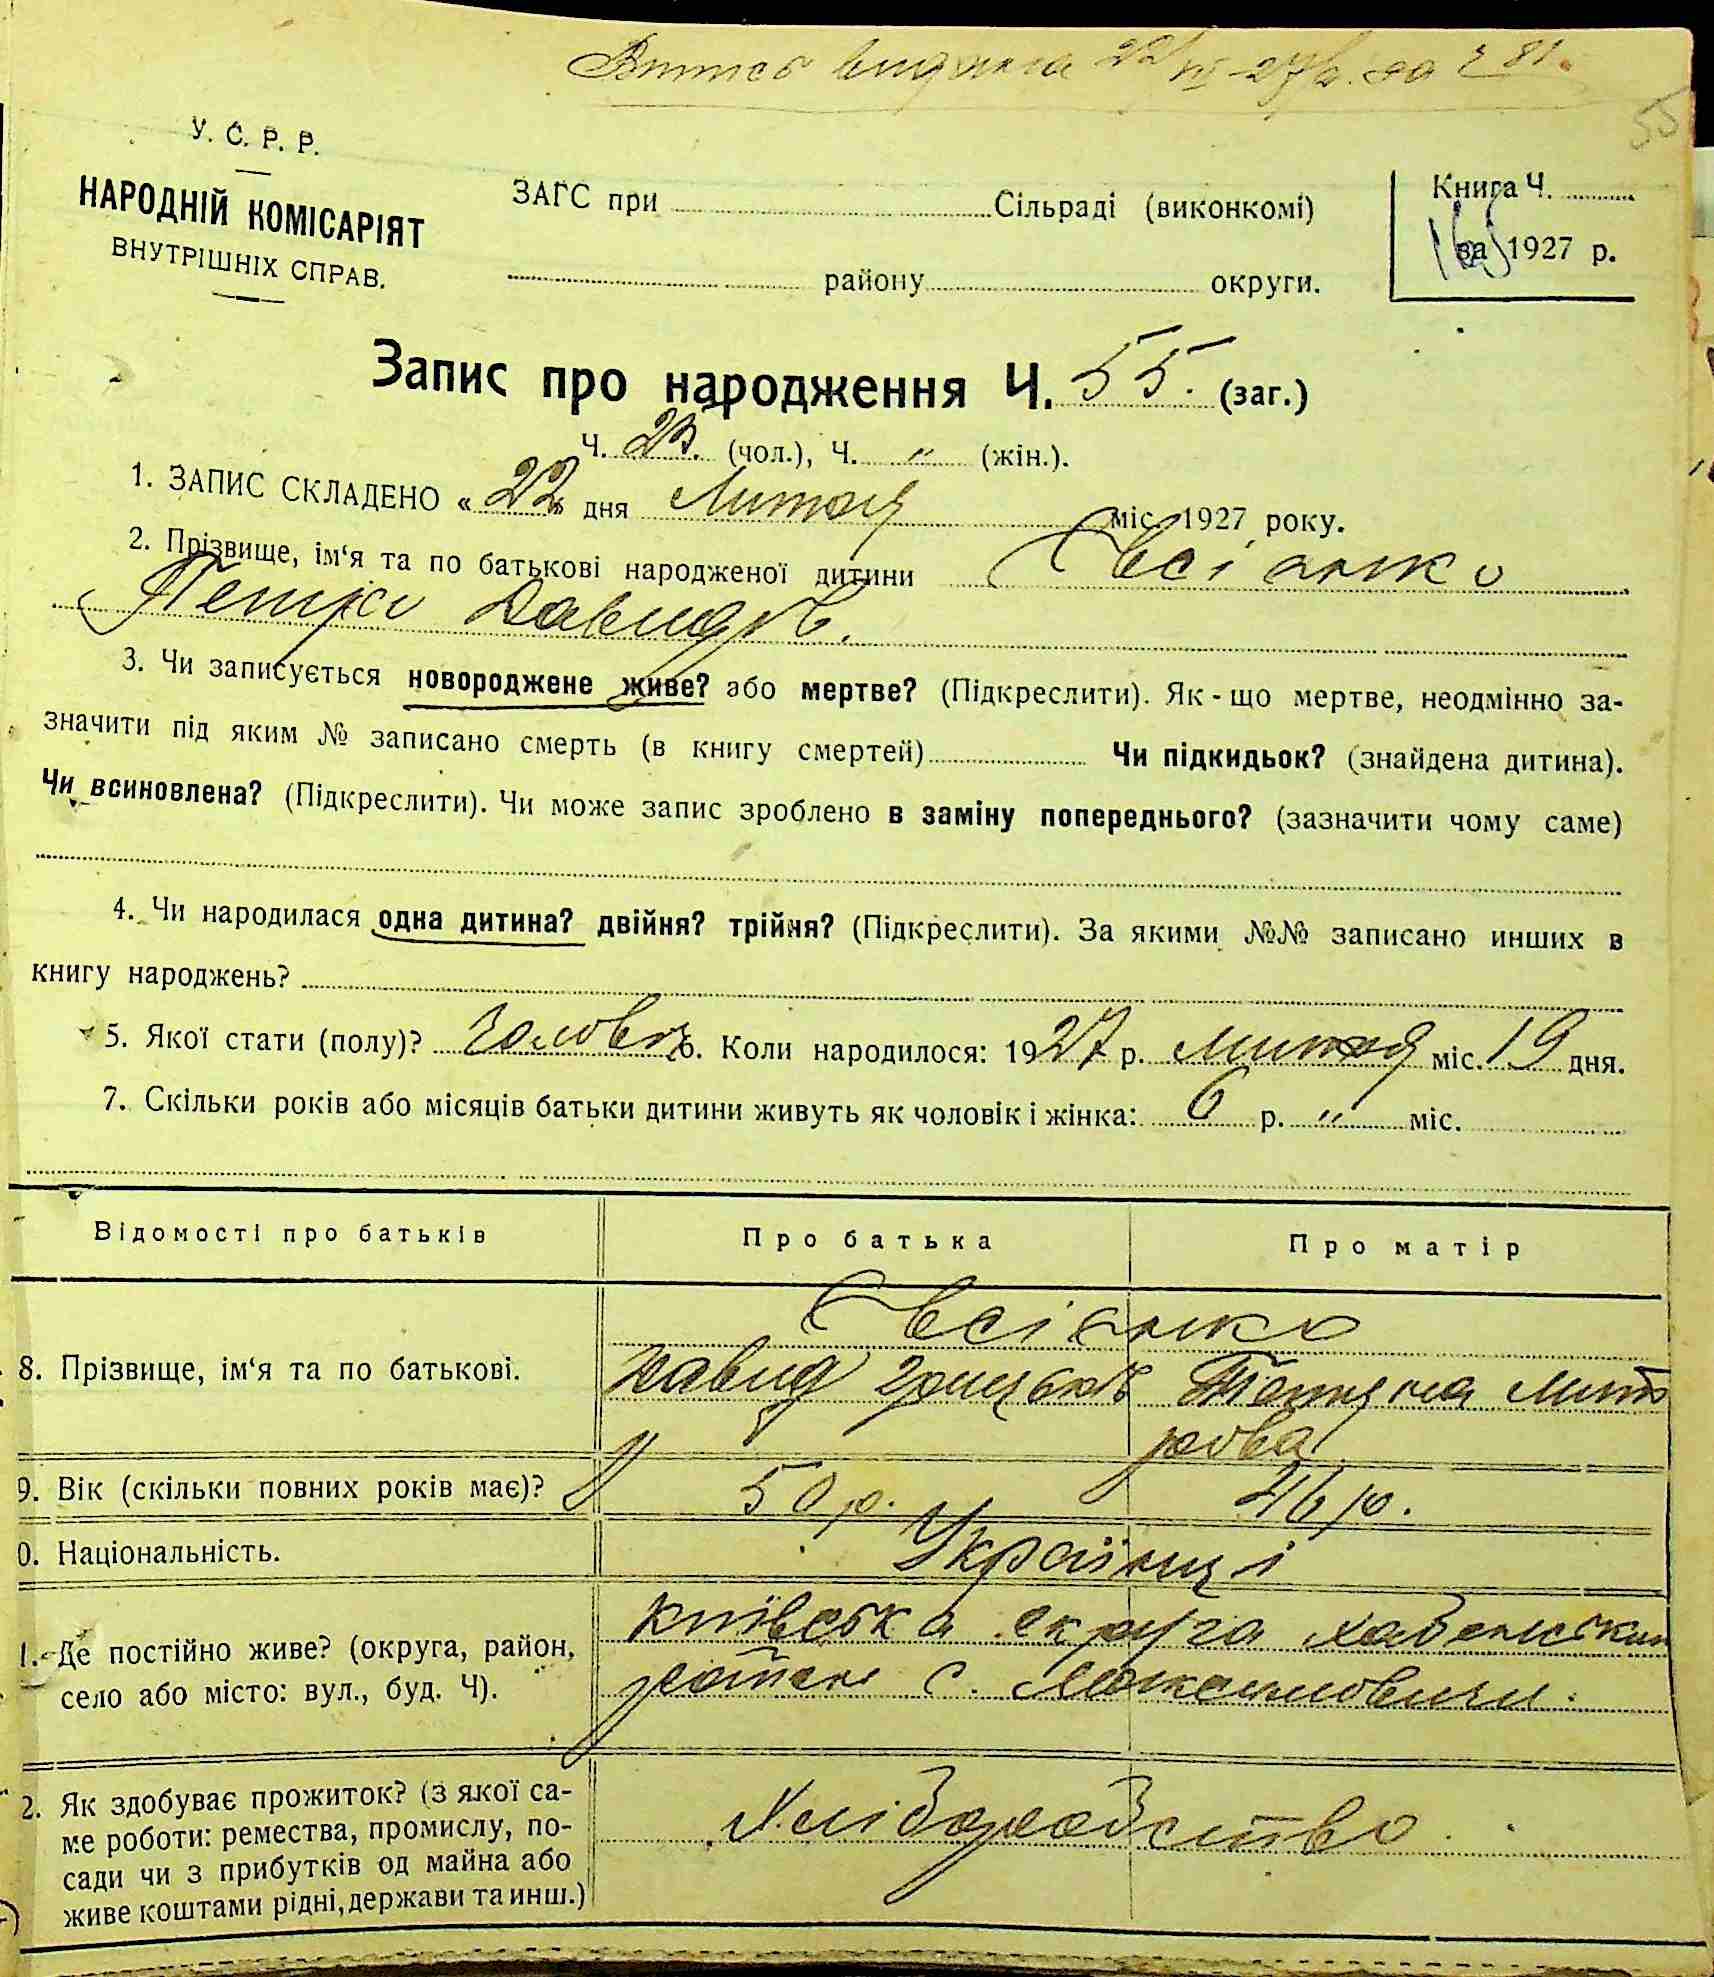 Витись видана 22/VI-27р. за ч 81.
55
У. С. Р. Р.
НАРОДНІЙ КОМІСАРІЯТ
ВНУТРІШНІХ СПРАВ.
ЗАГС при Сільраді (виконкомі)
району округи.
Книга Ч.
за 1927 р.
Запис про народження Ч. 55. (заг.)
Ч. 23. (чол.), Ч. „ (жін.).
1. ЗАПИС СКЛАДЕНО « 22 » дня Лютого міс. 1927 року.
2. Прізвище, ім‘я та по батькові народженої дитини Євсієнко
Петро Давидів.
3. Чи записується новороджене живе? або мертве? (Підкреслити). Як-що мертве, неодмінно за-
значити під яким № записано смерть (в книгу смертей) Чи підкидьок? (знайдена дитина).
Чи всиновлена? (Підкреслити). Чи може запис зроблено в заміну попереднього? (зазначити чому саме)
4. Чи народилася одна дитина? двійня? трійня? (Підкреслити). За якими №№ записано инших в
книгу народжень?
5. Якої стати (полу)? Чоловіч. 6. Коли народилося: 1927 р. лютого міс. 19 дня.
7. Скільки років або місяців батьки дитини живуть як чоловік і жінка: 6 р. „ міс.
Відомості про батьків Про батька Про матір
Євсієнко
8. Прізвище, ім‘я та по батькові. Давид Грицьків Тетяна Мит
рова
9. Вік (скільки повних років має)? 50 р. 46 р.
0. Національність. Українці
Київська округа Хабенський
1. Де постійно живе? (округа, район,
село або місто: вул., буд. Ч). район с. Максимовичи.
2. Як здобуває прожиток? (з якої са-
ме роботи: ремества, промислу, по- Хліборобство.
сади чи з прибутків од майна або
живе коштами рідні, держави та инш.)